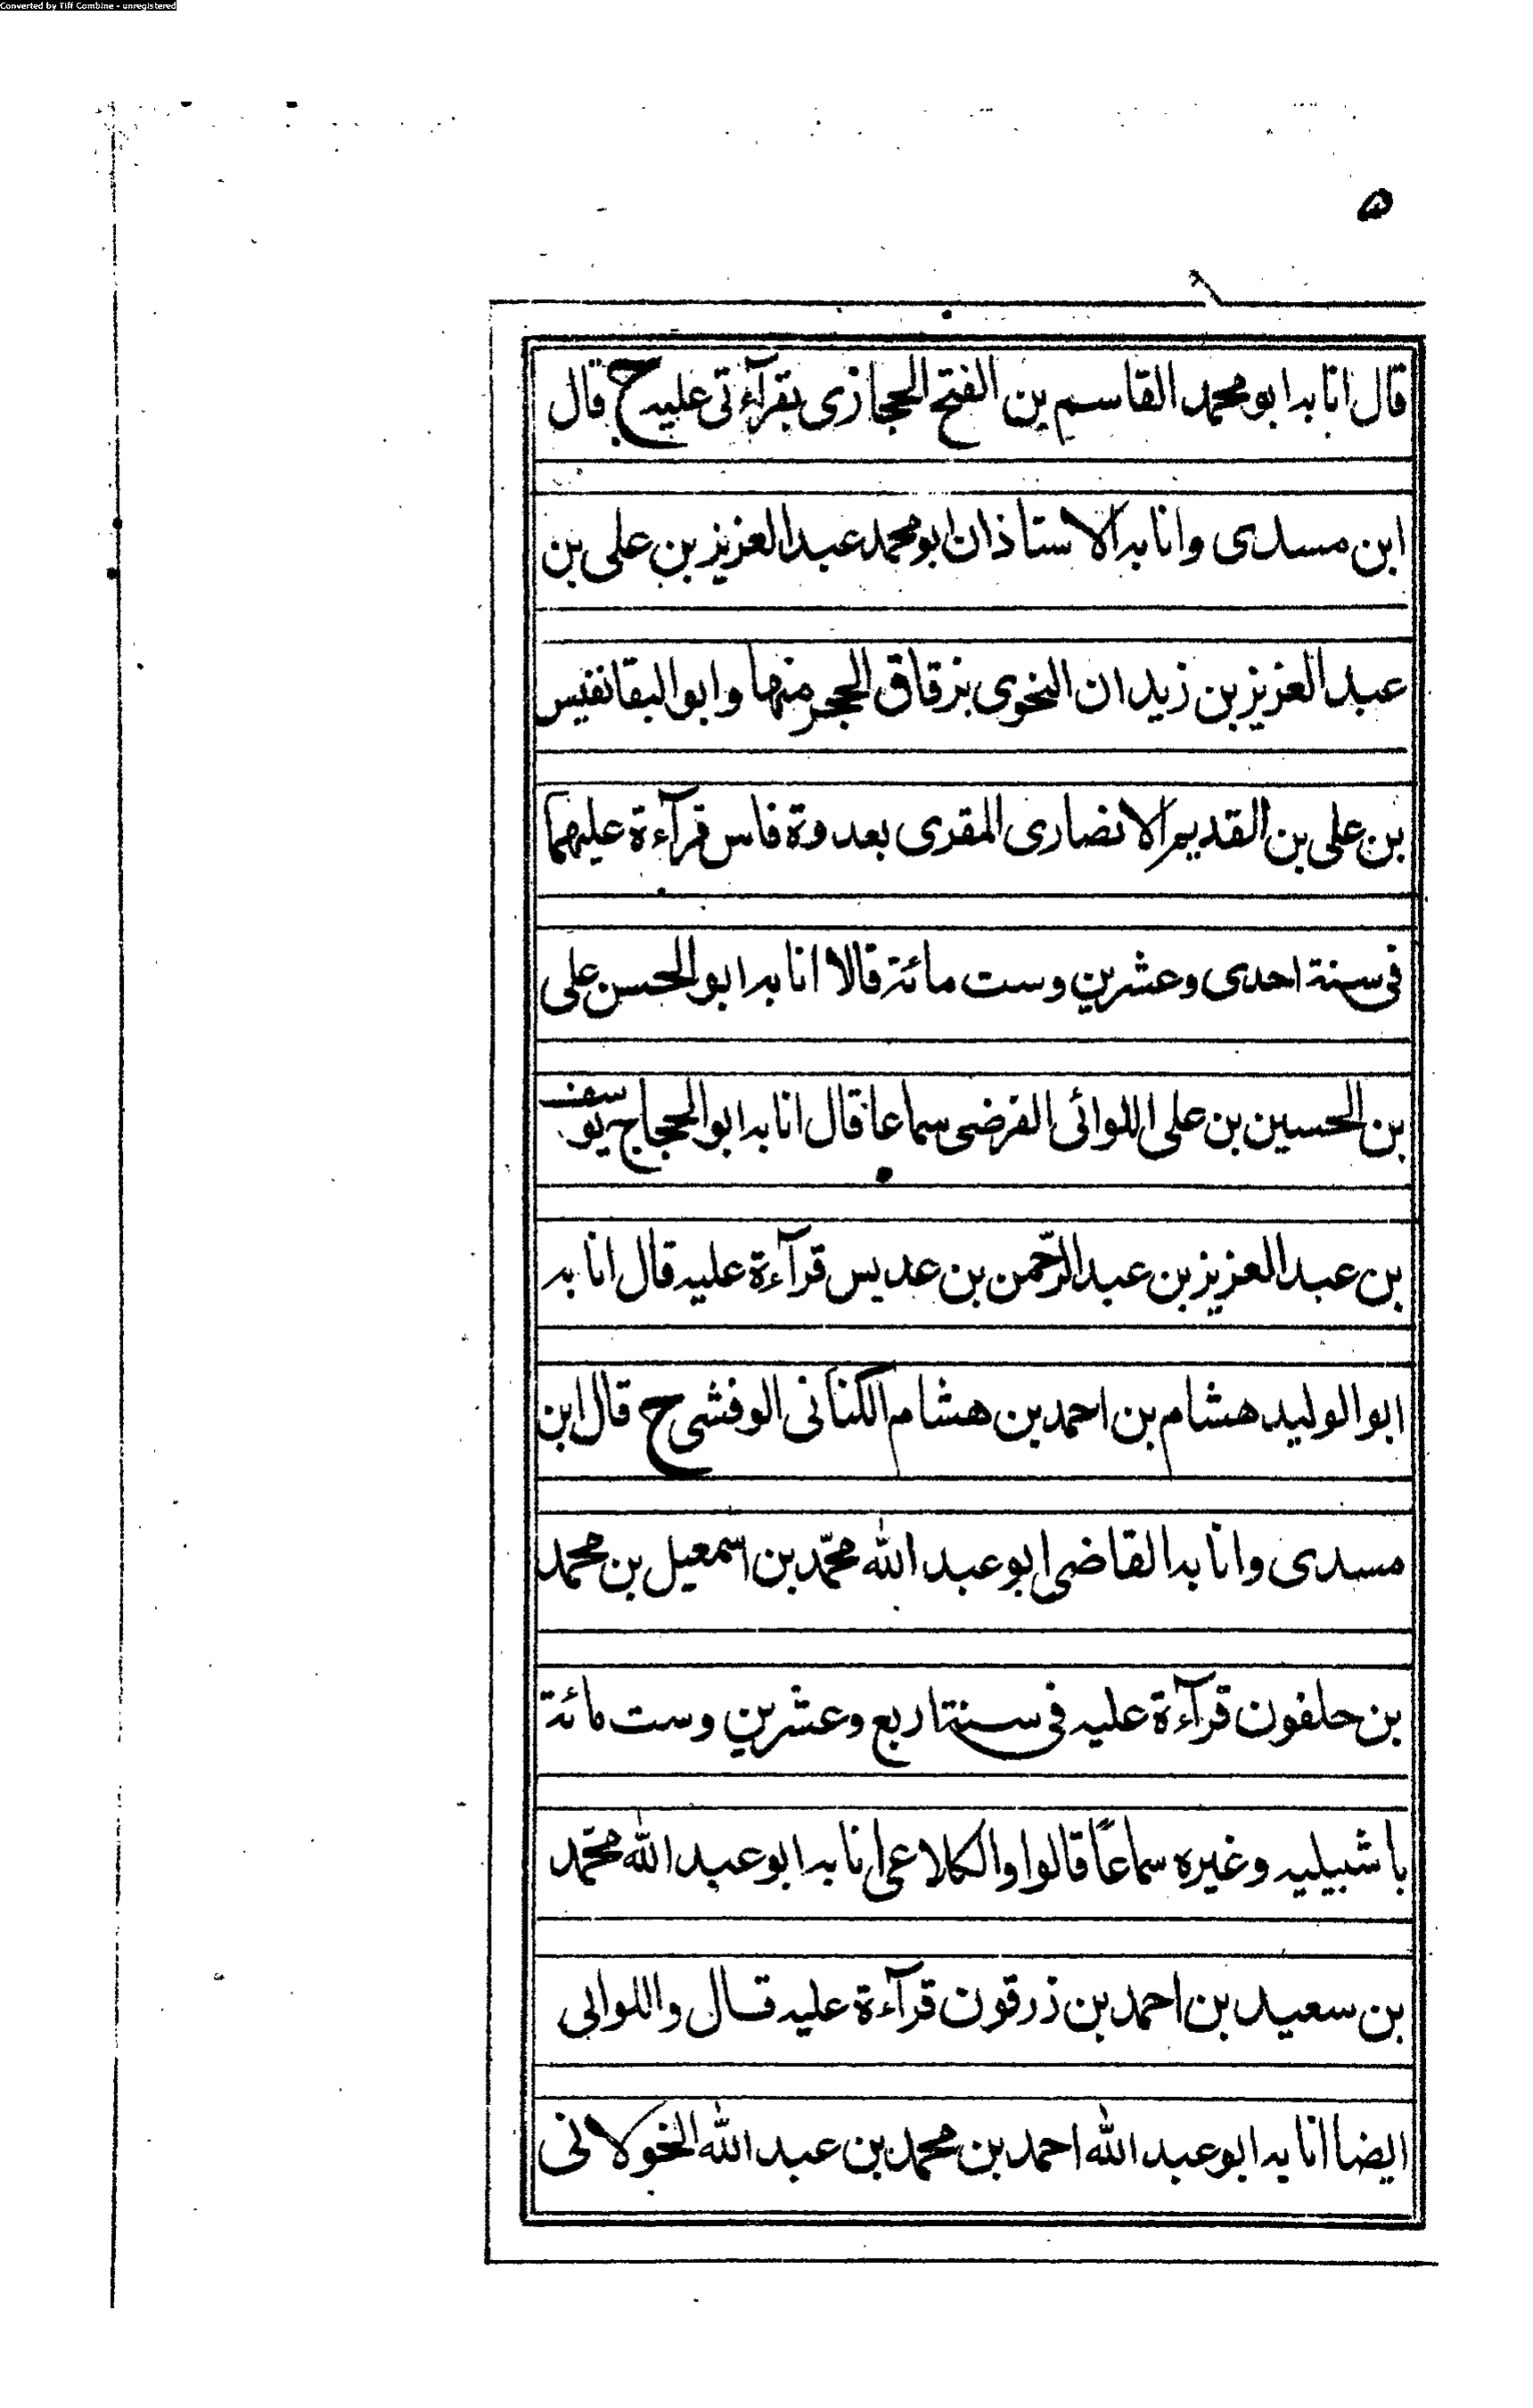 Converted by Tiff Combine - unregistered
۵
قال انا به ابو محمد القاسم بن الفتح الحجازى بقرآءتى عليه ح قال
ابن مسدى وانا به الاستاذان ابو محمد عبد العزيز بن على بن
عبد العزيز بن زيدان النحوى بزقاق الحجر منها وابو البقا نفيس
بن على بن القديم الانصارى المقرى بعدوة فاس قرآءة عليهما
فى سنة احدى وعشرين وست مائة قالا انا به ابو الحسن على
بن الحسين بن على اللوائى الفرضى سماعا قال انا به ابو الحجاج يوسف
بن عبد العزيز بن عبد الرّحمن بن عديس قرآءة عليه قال انا به
ابو الوليد هشام بن احمد بن هشام الكنانى الوفشى ح قال ابن
مسدى وانا به القاضى ابو عبد الله محمّد بن اسمعيل بن محمد
بن حلفون قرآءة عليه فى سنة اربع وعشرين وست مائة
باشبيليه وغيره سماعاً قالوا والكلاعى انا به ابو عبد الله محمّد
بن سعيد بن احمد بن زرقون قرآءة عليه قال واللوابى
ايضا انا به ابو عبد الله احمد بن محمد بن عبد الله الخولانى